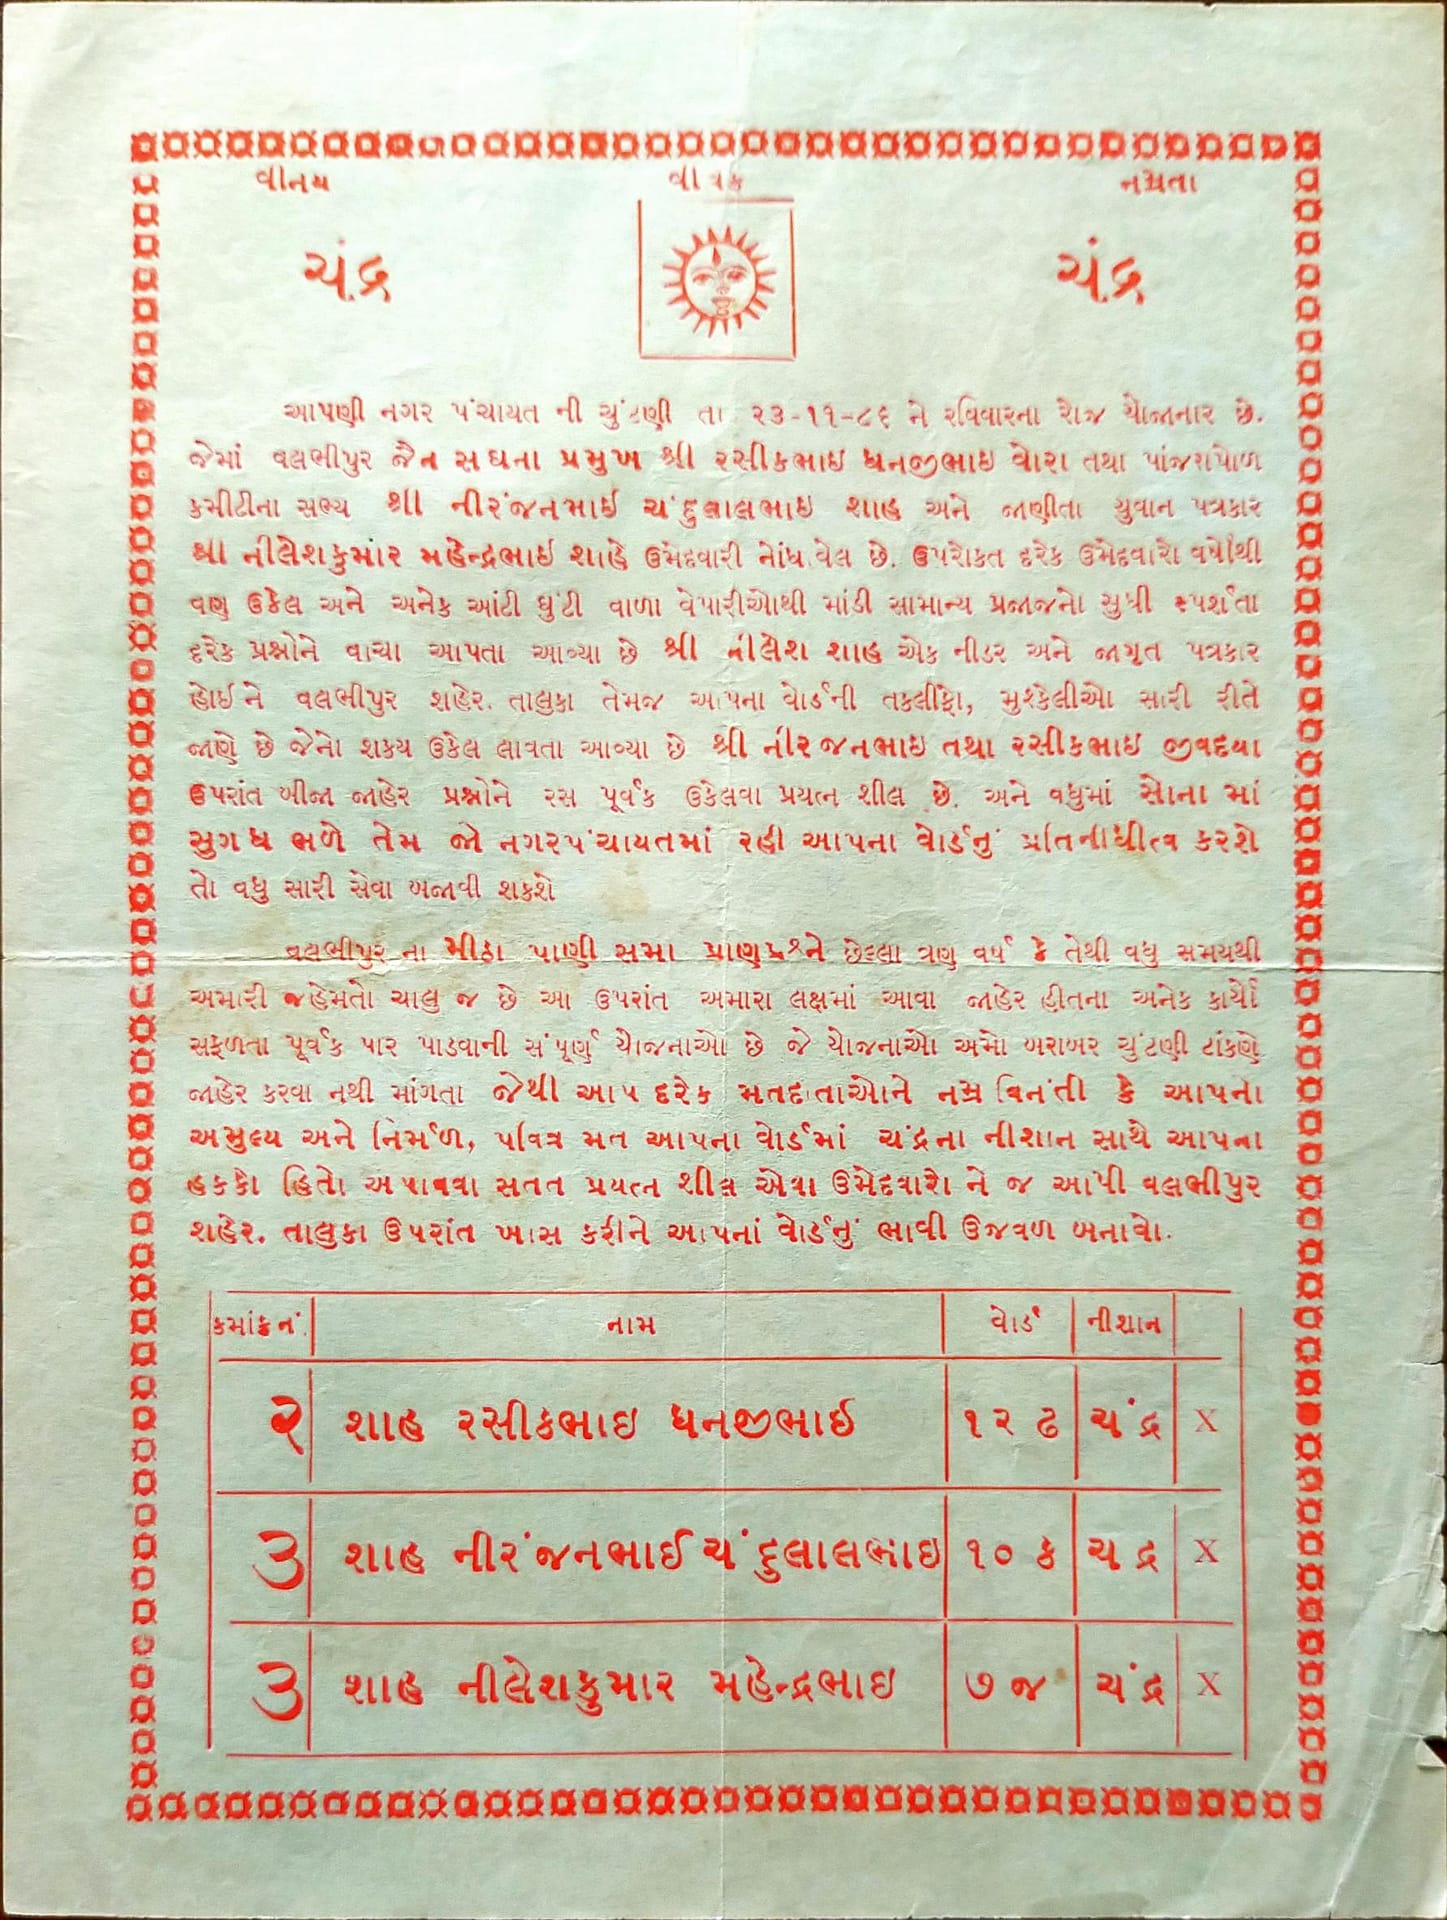 વીનય વીવેક નમ્રતા
ચંદ્ર ચંદ્ર
આપણી નગર પંચાયત ની ચુંટણી તા ૨૩-૧૧-૮૬ ને રવિવારના રોજ યોજાનાર છે.
જેમાં વલભીપુર જૈન સઘના પ્રમુખ શ્રી રસીકભાઇ ધનજીભાઇ વોરા તથા પાંજરાપોળ
કમીટીના સભ્ય શ્રી નીરંજનભાઈ ચંદુલાલભાઇ શાહ અને જાણીતા યુવાન પત્રકાર
શ્રી નીલેશકુમાર મહેન્દ્રભાઇ શાહે ઉમેદવારી નોંધાવેલ છે. ઉપરોકત દરેક ઉમેદવારો વર્ષોથી
વણ ઉકેલ અને અનેક આંટી ઘુંટી વાળા વેપારીઓથી માંડી સામાન્ય પ્રજાજનો સુધી સ્પર્શતા
દરેક પ્રશ્નોને વાચા આપતા આવ્યા છે શ્રી નીલેશ શાહ એક નીડર અને જાગૃત પત્રકાર
હોઈ ને વલભીપુર શહેર. તાલુકા તેમજ આપના વોર્ડની તકલીફો, મુશ્કેલીઓ સારી રીતે
જાણે છે જેનો શકય ઉકેલ લાવતા આવ્યા છે શ્રી નીરજનભાઇ તથા રસીકભાઇ જીવદયા
ઉપરાંત બીજા જાહેર પ્રશ્નોને રસ પૂર્વક ઉકેલવા પ્રયત્ન શીલ છે. અને વધુમાં સોના માં
સુગધ ભળે તેમ જો નગરપંચાયતમાં રહી આપના વોર્ડનું પ્રતિનીધીત્વ કરશે
તો વધુ સારી સેવા બજાવી શકશે
વલભીપુર ના મીઠા પાણી સમા પ્રાણપ્રશ્નને છેલ્લા ત્રણ વર્ષ કે તેથી વધુ સમયથી
અમારી જહેમતો ચાલુ જ છે આ ઉપરાંત અમારા લક્ષમાં આવા જાહેર હીતના અનેક કાર્યો
સફળતા પૂર્વક પાર પાડવાની સંપૂર્ણ યોજનાઓ છે જે યોજનાઓ અમો બરાબર ચુંટણી ટાંકણે
જાહેર કરવા નથી માંગતા જેથી આપ દરેક મતદાતાઓને નમ્ર વિનંતી કે આપનો
અમુલ્ય અને નિર્મળ, પવિત્ર મત આપના વોર્ડમાં ચંદ્રના નીશાન સાથે આપના
હકકો હિતો અપાવવા સતત પ્રયત્ન શીલ એવા ઉમેદવારો ને જ આપી વલભીપુર
શહેર. તાલુકા ઉપરાંત ખાસ કરીને આપનાં વોર્ડનું ભાવી ઉજવળ બનાવો.
કમાંક નં. નામ વોર્ડ નીશાન
૨ શાહ રસીકભાઇ ધનજીભાઈ ૧૨ ઢ ચંદ્ર X
૩ શાહ નીરંજનભાઈ ચંદુલાલભાઇ ૧૦ ક ચદ્ર X
૩ શાહ નીલેશકુમાર મહેન્દ્રભાઇ ૭ જ ચંદ્ર X